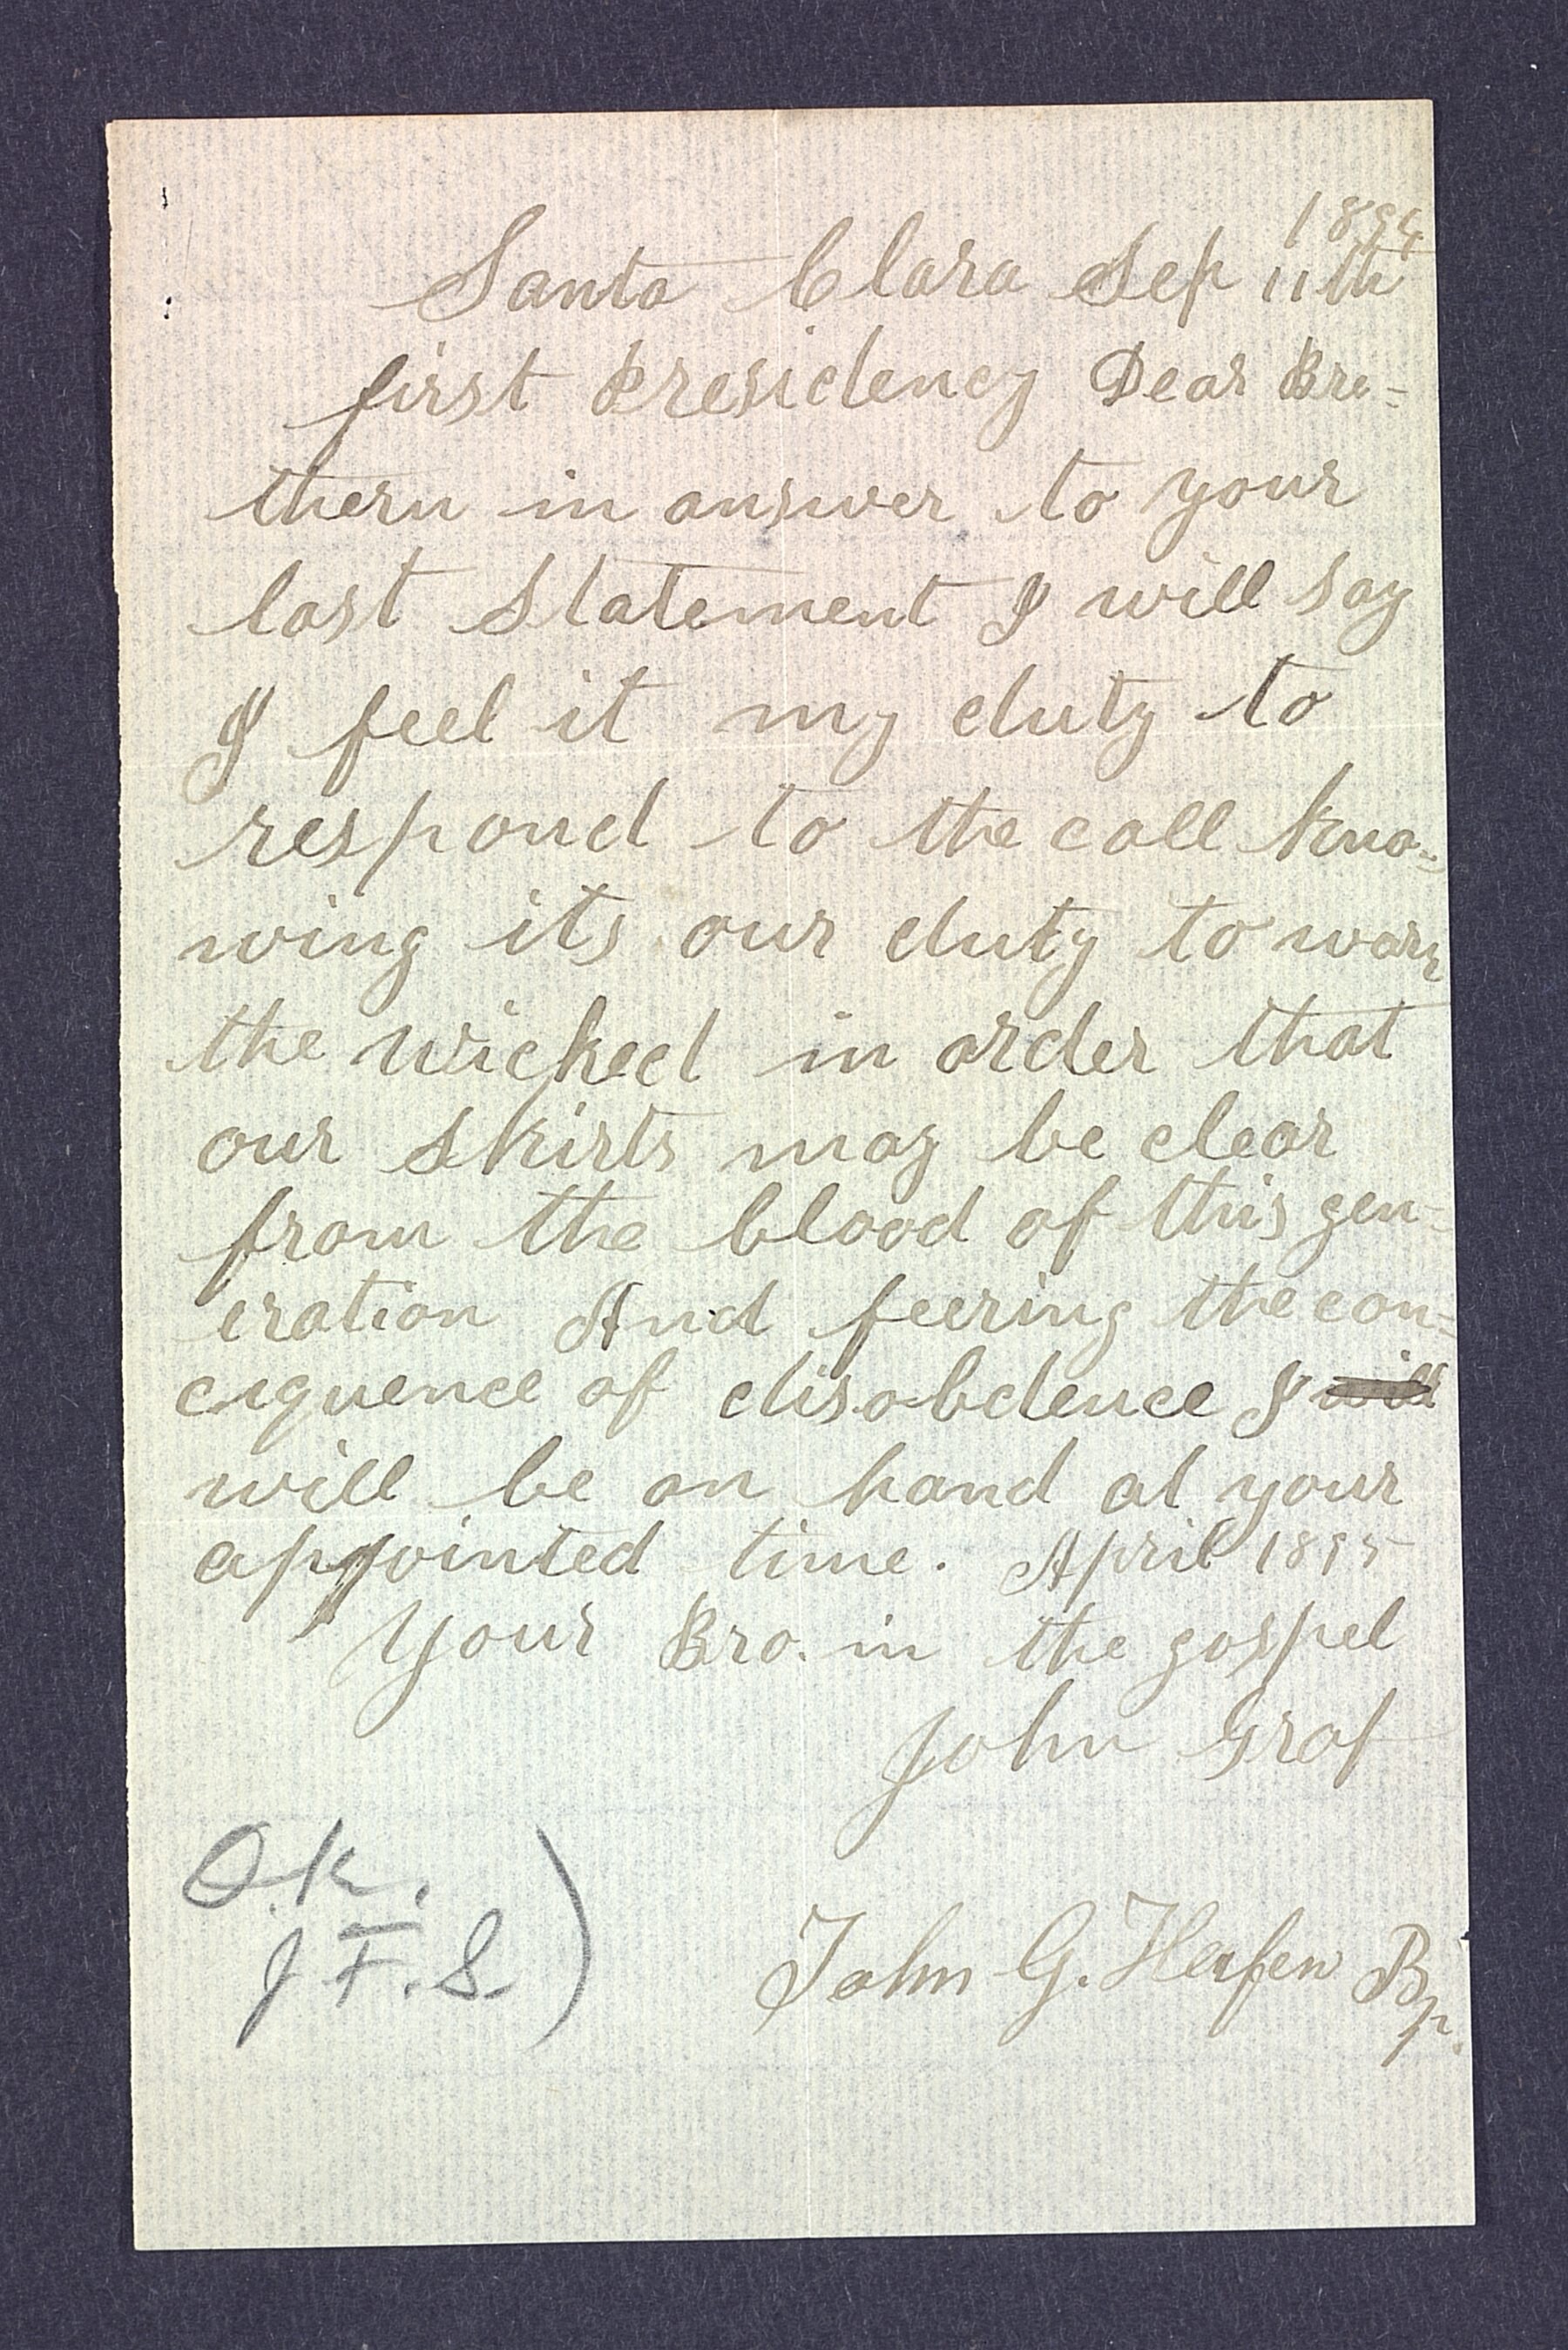 1894
Santa Clara Sep 11th
first Presidency Dear Bre=
thern in answer to your
last Statement I will say
I feel it my duty to
respond to the call kno=
wing its our duty to warn
the wicked in order that
our skirts may be clear
from the blood of this gen=
eration And feering the con=
cequence of disobdence I will
will be on hand at your
appointed time. April 1895
Your Bro. in the gospel
John Graf
O.K.
J F. S.
John G. Hafen Bp.